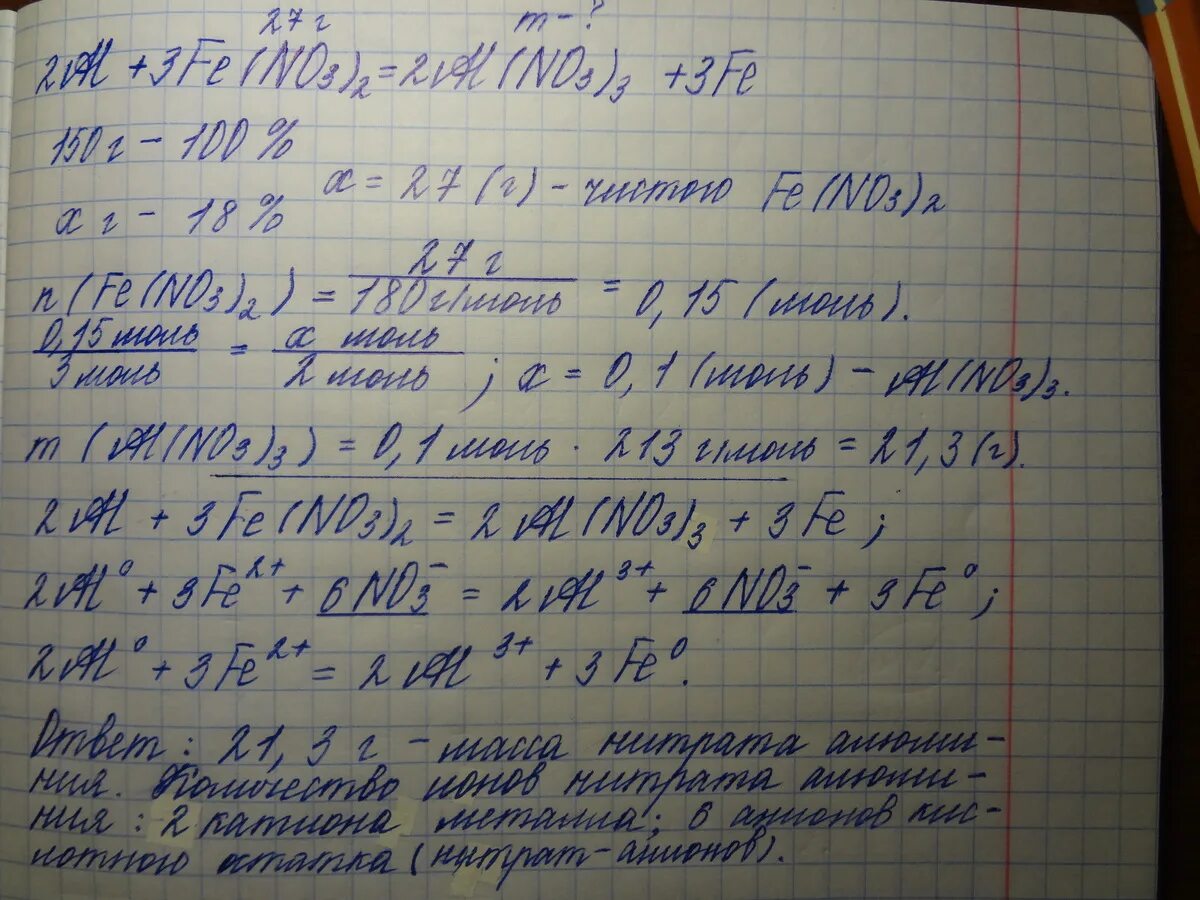 27 г m - ?
2Al + 3Fe(NO3)2 = 2Al(NO3)3 + 3Fe
150 г - 100 %
x г - 18 % x = 27 (г) - чистого Fe(NO3)2
n(Fe(NO3)2) = 27 г / 180 г/моль = 0,15 (моль).
0,15 моль / 3 моль = x моль / 2 моль ; x = 0,1 (моль) - Al(NO3)3.
m (Al(NO3)3) = 0,1 моль · 213 г/моль = 21,3 (г).
2Al + 3Fe(NO3)2 = 2Al(NO3)3 + 3Fe ;
2Al⁰ + 3Fe²⁺ + 6NO3⁻ = 2Al³⁺ + 6NO3⁻ + 3Fe⁰ ;
2Al⁰ + 3Fe²⁺ = 2Al³⁺ + 3Fe⁰.
Ответ : 21, 3 г - масса нитрата алюми-
ния. Количество ионов нитрата алюми-
ния : 2 катиона металла; 6 анионов кис-
лотного остатка (нитрат-анионов).